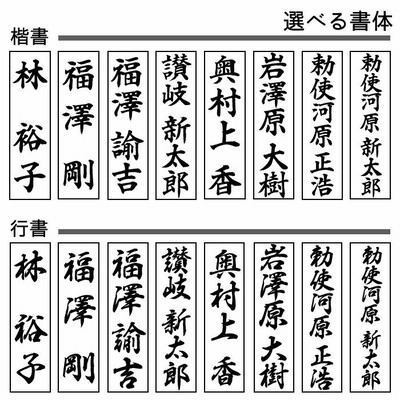 選べる書体
楷書
林 裕子
福澤 剛
福澤 諭吉
讃岐 新太郎
奥村上 香
岩澤原 大樹
勅使河原 正浩
勅使河原 新太郎
行書
林 裕子
福澤 剛
福澤 諭吉
讃岐 新太郎
奥村上 香
岩澤原 大樹
勅使河原 正浩
勅使河原 新太郎